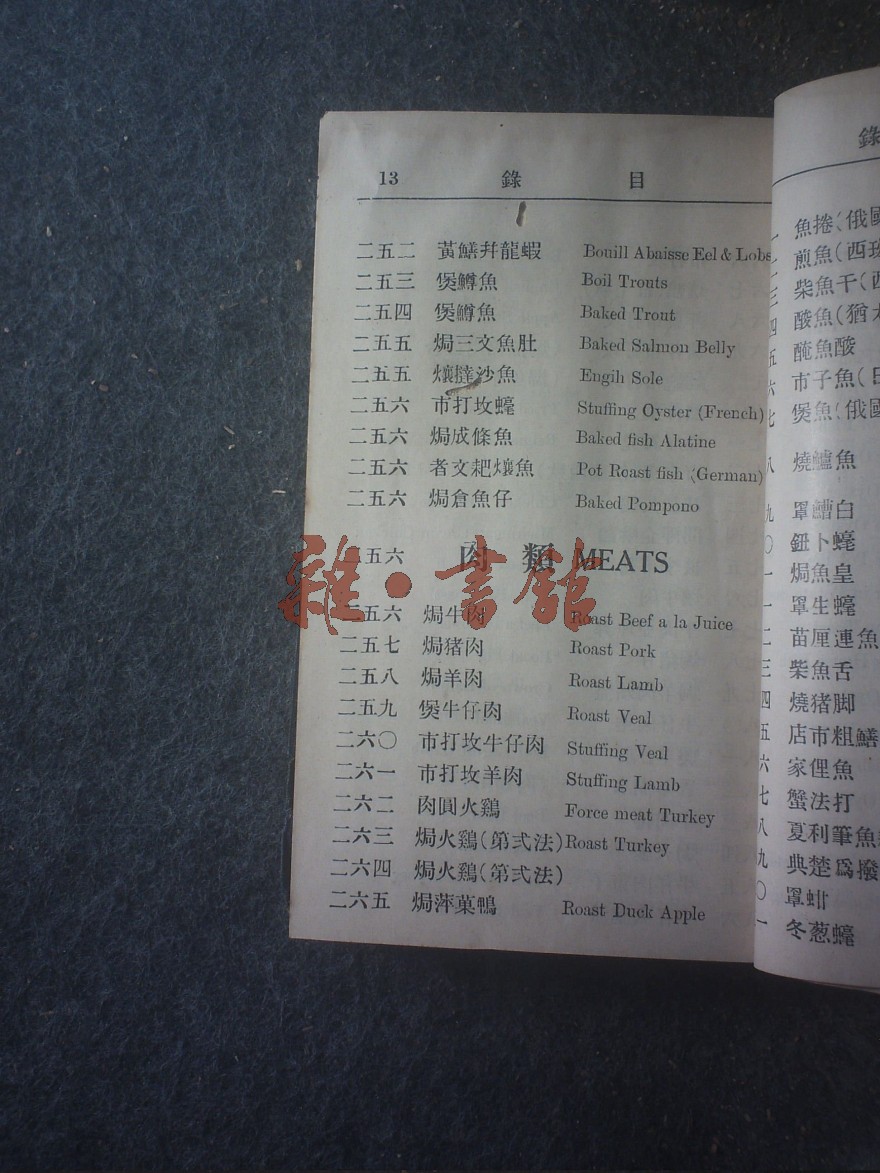 13 錄 目
二五二 黃鱔幷龍蝦 Bouill Abaisse Eel & Lobs
二五三 煲鱒魚 Boil Trouts
二五四 煲鱒魚 Baked Trout
二五五 焗三文魚肚 Baked Salmon Belly
二五五 燶撻沙魚 Engih Sole
二五六 市打坟蠔 Stuffing Oyster (French)
二五六 焗成條魚 Baked fish Alatine
二五六 者文耙燶魚 Pot Roast fish (German)
二五六 焗倉魚仔 Baked Pompono
五六 肉類 MEATS
二五六 焗牛肉 Roast Beef a la Juice
二五七 焗猪肉 Roast Pork
二五八 焗羊肉 Roast Lamb
二五九 煲牛仔肉 Roast Veal
二六〇 市打坟牛仔肉 Stuffing Veal
二六一 市打坟羊肉 Stuffing Lamb
二六二 肉圓火鷄 Force meat Turkey
二六三 焗火鷄(第弍法) Roast Turkey
二六四 焗火鷄(第弍法)
二六五 焗萍菓鴨 Roast Duck Apple
雜·書館
錄
一 魚捲(俄國
二 煎魚(西班
三 柴魚干(西
四 酸魚(猶太
五 醃魚酸
六 市子魚(日
七 煲魚(俄國
八 燒鱸魚
九 罩鰽白
〇 鈕卜蠔
一 焗魚皇
一 罩生蠔
二 苗厘連魚
三 柴魚舌
四 燒猪脚
五 店市粗鱔
六 家俚魚
七 蟹法打
八 夏利筆魚
九 典楚爲撥
〇 罩蚶
一 冬葱蠔